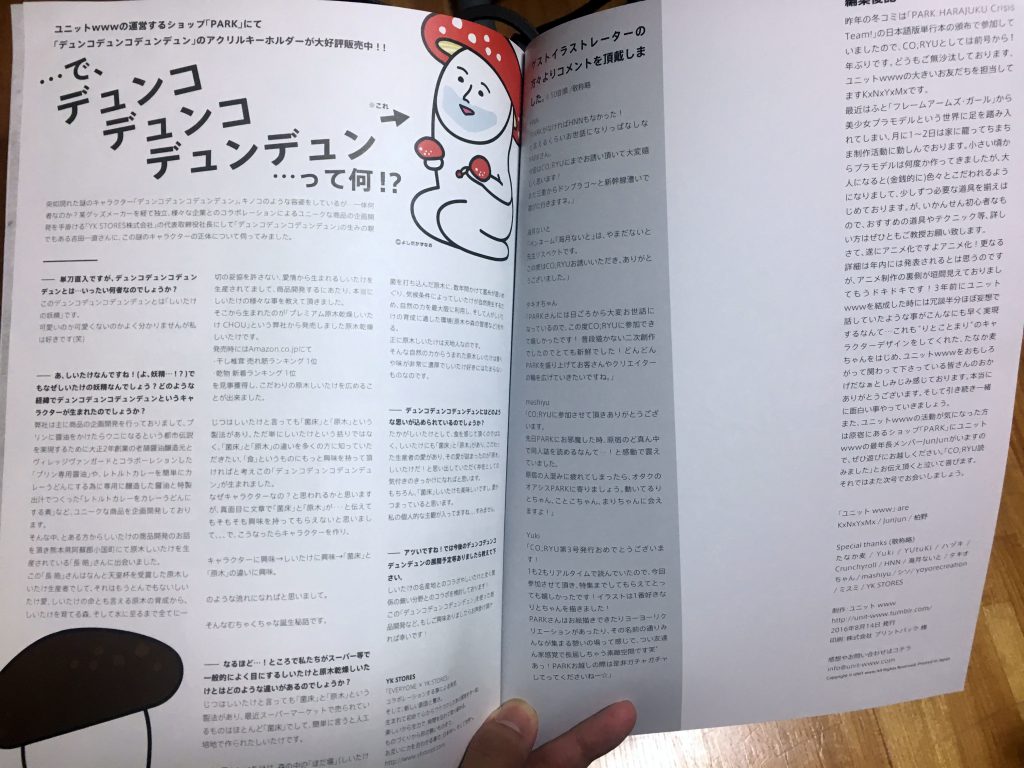 ユニットwwwの運営するショップ「PARK」にて
「デュンコデュンコデュンデュン」のアクリルキーホルダーが大好評販売中!!
…で、
デュンコ
デュンコ
デュンデュン
…って何!?
※これ
©よしだかずなお
突如現れた謎のキャラクター「デュンコデュンコデュンデュン」。キノコのような容姿をしているが…一体何
者なのか?某グッズメーカーを経て独立、様々な企業とのコラボレーションによるユニークな商品の企画開
発を手掛ける「YK STORES株式会社」の代表取締役社長にして「デュンコデュンコデュンデュン」の生みの親
でもある吉田一直さんに、この謎のキャラクターの正体について伺ってみました。
―― 単刀直入ですが、デュンコデュンコデュン
デュンとは…いったい何者なのでしょうか?
このデュンコデュンコデュンデュンとは「しいたけ
の妖精」です。
可愛いのか可愛くないのかよく分かりませんが私
は好きです(笑)
―― あ、しいたけなんですね!(よ、妖精…!?)で
もなぜしいたけの妖精なんでしょう?どのような
経緯でデュンコデュンコデュンデュンというキャ
ラクターが生まれたのでしょうか?
弊社は主に商品の企画開発を行っておりまして、プ
リンに醤油をかけたらウニになるという都市伝説
を実現するために大正2年創業の老舗醤油醸造元と
ヴィレッジヴァンガードとコラボレーションした
「プリン専用醤油」や、レトルトカレーを簡単にカ
レーうどんにする為に専用に醸造した醤油と特製
出汁でつくった「レトルトカレーをカレーうどんに
する素」など、ユニークな商品を企画開発しており
ます。
そんな中、とある方からしいたけの商品開発のお話
を頂き熊本県阿蘇郡小国町にて原木しいたけを生
産されている「長 皓」さんに出会いました。
この「長 皓」さんはなんと天皇杯を受賞した原木し
いたけ生産者でして、それはもうとんでもないしい
たけ愛、しいたけの命とも言える原木の育成から、
しいたけを育てる森、そして水に至るまで全てに一
切の妥協も許さない、愛情から生まれるしいたけを
生産されてまして、商品開発するにあたり、本当に
しいたけの様々な事を教えて頂きました。
そこから生まれたのが「プレミアム原木乾燥しいた
け CHOU」という弊社から発売しました原木乾燥
しいたけです。
発売時にはAmazon.co.jpにて
・干し椎茸 売れ筋ランキング 1位
・乾物 新着ランキング 1位
を見事獲得し、こだわりの原木しいたけを広めるこ
とが出来ました。
じつはしいたけと言っても「菌床」と「原木」という
製法があり、ただ単にしいたけという括りではな
く、「菌床」と「原木」の違いを多くの方に知っていた
だきたい、「食」というものにもっと興味を持って頂
ければと考えこの「デュンコデュンコデュンデュ
ン」が生まれました。
なぜキャラクターなの?と思われるかと思います
が、真面目に文章で「菌床」と「原木」が…と伝えて
もそもそも興味を持ってもらえないと思いまし
て…、で、こうなったらキャラクターを作り、
キャラクターに興味→しいたけに興味→「菌床」と
「原木」の違いに興味。
のような流れになればと思いまして。
そんなむちゃくちゃな誕生秘話です。
―― なるほど…!ところで私たちがスーパー等で
一般的によく目にするしいたけと原木乾燥しいた
けとはどのような違いがあるのでしょうか?
じつはしいたけと言っても「菌床」と「原木」という
製法があり、最近スーパーマーケットで売られてい
るものはほとんど「菌床」でして、簡単に言うと人工
培地で作られたしいたけです。
菌を打ち込んだ原木に、数年間かけて菌糸が蔓延
正に原木しいたけは天地人なのです。
―― デュンコデュンコデュンデュンにはどのよう
な思いが込められているのでしょうか?
気付きのきっかけになればと思います。
つまっていると思います。
私の個人的な主観が入ってますね…すみません。
―― アツいですね!では今後のデュンコデュンコ
デュンデュンの展開予定等ありましたら教えて下
さい。
れば幸いです!
YK STORES
「EVERYONE × YK STORES」
ゲストイラストレーターの
方々よりコメントを頂戴しま
した。※50音順/敬称略
HNN
「PARKがなければHNNもなかった!
と言えるくらいお世話になりっぱなしな
PARKさん。
今回はCO;RYUにまでお誘い頂いて大変嬉
しく思います!
また三重からドンブラコ〜と新幹線漕いで
遊びに行きますね。」
海月ないと
「ペンネーム『海月ないと』は、やまだないと
先生リスペクトです。
この度はCO;RYUお誘いいただき、ありがと
うございました。」
タキオちゃん
「PARKさんには日ごろから大変お世話に
なっているので、この度CO;RYUに参加でき
て嬉しかったです!普段描かない二次創作
でしたのでとても新鮮でした!どんどん
PARKを盛り上げてお客さんやクリエイター
の輪を広げていきたいですね。」
mashiyu
「CO;RYUに参加させて頂きありがとうござ
います。
先日PARKにお邪魔した時、原宿のど真ん中
で同人誌を読めるなんて…!と感動で震え
ていました。
原宿の人混みに疲れてしまったら、オタクの
オアシスPARKに寄りましょう。動いてるり
とちゃん、ことこちゃん、まりちゃんに会え
ますよ!」
Yuki
「CO;RYU第3号発行おめでとうございま
す!
1も2もリアルタイムで読んでいたので、今回
参加させて頂き、特集までしてもらえてとっ
ても嬉しかったです!イラストは1番好きな
りとちゃんを描きました!
PARKさんはお絵描きできたりヨーヨーリク
リエーションがあったり、その名前の通りみ
んなが集まる憩いの場って感じで、つい友達
ん家感覚で長居しちゃう素敵空間です笑
あっ!PARKお越しの際は是非ガチャガチャ
してってくださいねー☆」
編集後記
昨年の冬コミは「PARK HARAJUKU Crisis
Team!」の日本語版単行本の頒布で参加して
いましたので、CO;RYUとしては前号から1
年ぶりです。どうもご無沙汰しております、
ユニットwwwの大きいお友だちを担当して
ますKxNxYxMxです。
最近はふと「フレームアームズ・ガール」から
美少女プラモデルという世界に足を踏み入
れてしまい、月に1〜2日は家に籠ってちまち
ま制作活動に勤しんでおります。小さい頃か
らプラモデルは何度か作ってきましたが、大
人になると(金銭的に)色々とこだわれるよう
になりまして、少しずつ必要な道具を揃えは
じめております。が、いかんせん初心者なも
ので、おすすめの道具やテクニック等、詳し
い方はぜひともご教授お願い致します。
さて、遂にアニメ化ですよアニメ化!更なる
詳細は年内には発表されるとは思うのです
が、アニメ制作の裏側が垣間見えておりまし
てもうドキドキです!3年前にユニット
wwwを結成した時には冗談半分ほぼ妄想で
話していたような事がこんなにも早く実現
するなんて…これも“りとことまり”のキャラ
クターデザインをしてくれた、たなか麦
ちゃんをはじめ、ユニットwwwをおもしろ
がって関わって下さっている皆さんのおか
げだなぁとしみじみ感じております。本当に
ありがとうございます。そして引き続き一緒
に面白い事やっていきましょう。
また、ユニットwwwの活動が気になった方
は原宿にあるショップ「PARK」にユニット
wwwの最年長メンバーJunJunがいますの
で、ぜひ遊びにお越しください。「CO;RYU読
みました」とお伝え頂くと泣いて喜びます。
それではまた次号でお会いしましょう。
「ユニット www」are
KxNxYxMx / JunJun / 柏野
Special thanks (敬称略)
たなか麦 / Yuki / YUtuKi / ハヅキ /
Crunchyroll / HNN / 海月ないと / タキオ
ちゃん / mashiyu / シソ / yoyorecreation
/ ミスミ / YK STORES
制作:ユニット www
http://unit-www.tumblr.com/
2016年8月14日 発行
印刷:株式会社 プリントパック 様
感想やお問い合わせはコチラ
info@unit-www.com
Copyright © UNIT www All Rights Reserved. Printed in Japan